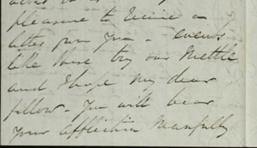 pleasure to receive a
letter from you. - events
like these try our Mettle
and I hope my dear
fellow - you will bear
your affliction Manfully